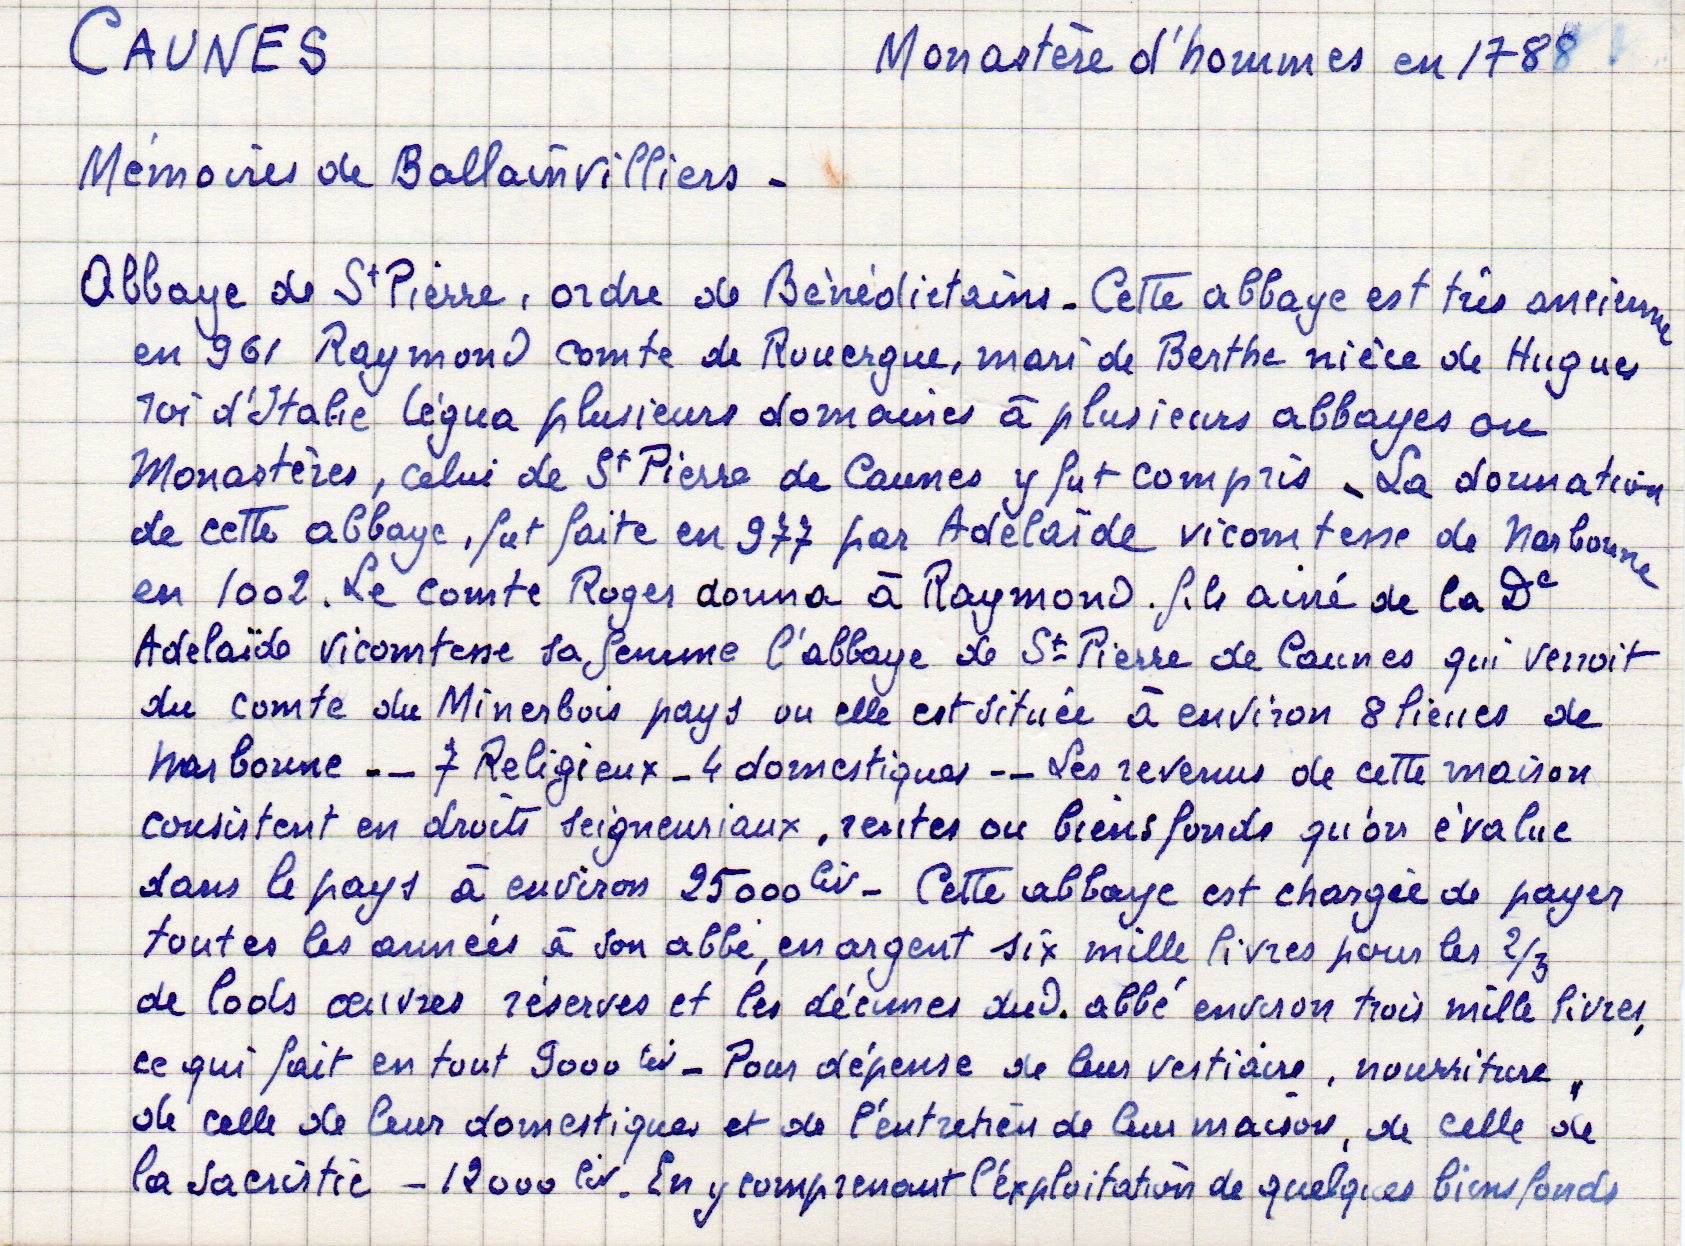 CAUNES Monastère d'hommes en 1788
Mémoires de Ballainvilliers -
Abbaye de St Pierre, ordre de Bénédictains - Cette abbaye est très ancienne
en 961 Raymond comte de Rouergue, mari de Berthe nièce de Hugues
roi d'Italie légua plusieurs domaines à plusieurs abbayes ou
Monastères, celui de St Pierre de Caunes y fut compris - La donnation
de cette abbaye, fut faite en 977 par Adélaïde vicomtesse de Narbonne
en 1002. Le comte Roger donna à Raymond. fils ainé de la De
Adelaïde vicomtesse sa femme l'abbaye de St Pierre de Caunes qui venoit
du comte du Minerbois pays ou elle est située à environ 8 lieues de
Narbonne -- 7 Religieux - 4 domestiques -- Les revenus de cette maison
consistent en droits seigneuriaux, rentes ou biens fonds qu'on évalue
dans le pays à environ 25000 liv - Cette abbaye est chargée de payer
toutes les années à son abbé, en argent six mille livres pour les 2/3
de lods œuvres réserves et les décimes dud. abbé environ trois mille livres,
ce qui fait en tout 9000 liv - Pour dépense de leur vestiaire, nourriture,,
de celle de leur domestiques et de l'entretien de leur maison, de celle de
la sacristie - 12000 liv. En y comprenant l'éxploitation de quelques biens fonds